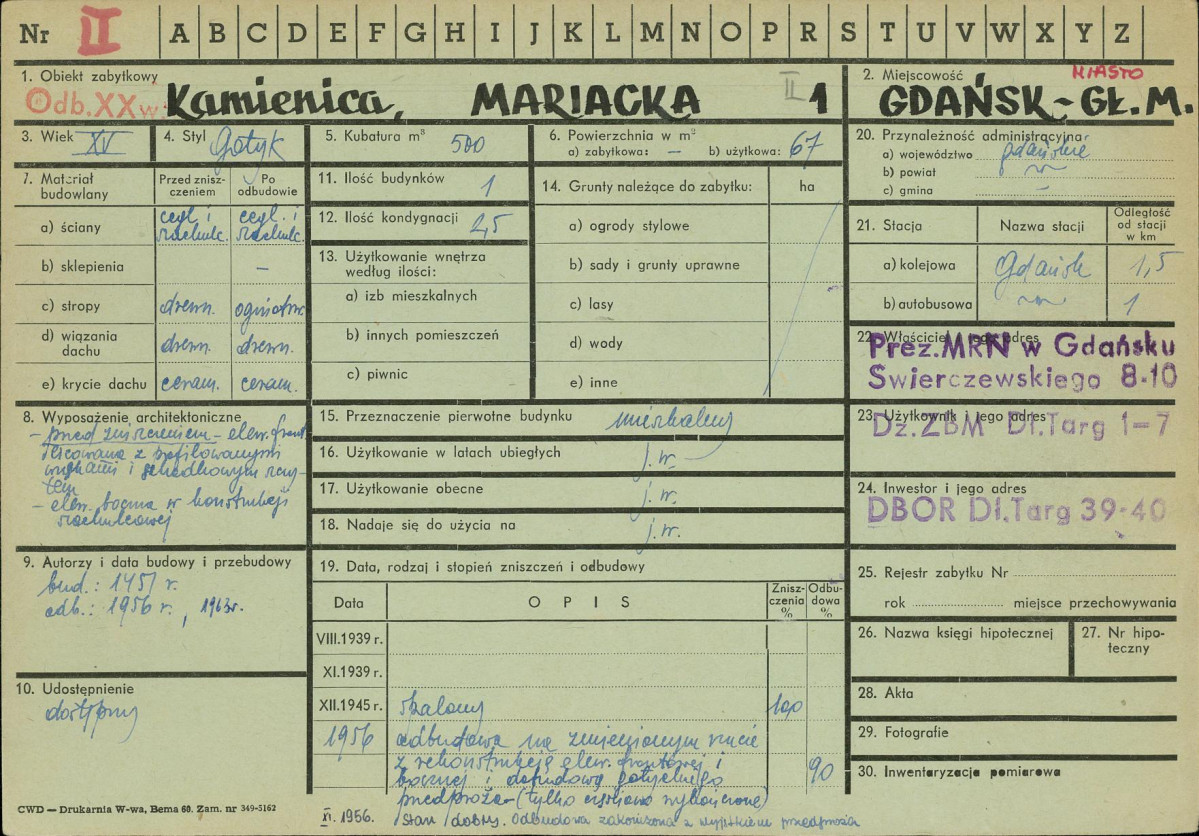 Nr II A B C D E F G H I J K L M N O P R S T U V W X Y Z
1. Obiekt zabytkowy
Odb.XXw. Kamienica, MARIACKA II 1
2. Miejscowość MIASTO
GDAŃSK-GŁ.M.
3. Wiek XV
4. Styl Gotyk
5. Kubatura m³ 500
6. Powierzchnia w m²
a) zabytkowa: — b) użytkowa: 67
20. Przynależność administracyjna
a) województwo gdańskie
b) powiat
c) gmina —
7. Materiał budowlany
Przed zniszczeniem
Po odbudowie
a) ściany cegl i szachulc. cegl. i szachulc.
b) sklepienia —
c) stropy drewn. ogniotrw.
d) wiązania dachu drewn. drewn.
e) krycie dachu ceram. ceram.
11. Ilość budynków 1
12. Ilość kondygnacji 2,5
13. Użytkowanie wnętrza
według ilości:
a) izb mieszkalnych
b) innych pomieszczeń
c) piwnic
14. Grunty należące do zabytku: ha
a) ogrody stylowe
b) sady i grunty uprawne
c) lasy
d) wody
e) inne
21. Stacja Nazwa stacji Odległość od stacji w km
a) kolejowa Gdańsk 1,5
b) autobusowa 1
22. Właściciel i jego adres
Prez.MRN w Gdańsku
Swierczewskiego 8-10
8. Wyposażenie architektoniczne
- przed zniszczeniem - elew. front.
licowana z profilowanymi
wnękami i schodkowym szczy-
tem
- elew. boczna w konstrukcji
szachulcowej
15. Przeznaczenie pierwotne budynku mieszkalny
16. Użytkowanie w latach ubiegłych j.w.
17. Użytkowanie obecne j.w.
18. Nadaje się do użycia na j.w.
23. Użytkownik i jego adres
Dz.ZBM Dł.Targ 1-7
24. Inwestor i jego adres
DBOR Dł.Targ 39-40
9. Autorzy i data budowy i przebudowy
bud.: 1451 r.
odb.: 1956 r., 1963r.
19. Data, rodzaj i stopień zniszczeń i odbudowy
Data OPIS Zniszczenia % Odbudowa %
VIII.1939 r.
XI.1939 r.
XII.1945 r. spalony 100
1956 odbudowa na zmienionym rzucie
z rekonstrukcją elew. frontowej i
bocznej i dobudową gotyckiego 90
przedproża - (tylko częściowo wykończone)
XI. 1956. Stan dobry. Odbudowa zakończona z wyjątkiem przedproża
25. Rejestr zabytku Nr
rok miejsce przechowywania
26. Nazwa księgi hipotecznej
27. Nr hipoteczny
10. Udostępnienie
dostępny
28. Akta
29. Fotografie
30. Inwentaryzacja pomiarowa
CWD — Drukarnia W-wa, Bema 60. Zam. nr 349-5162